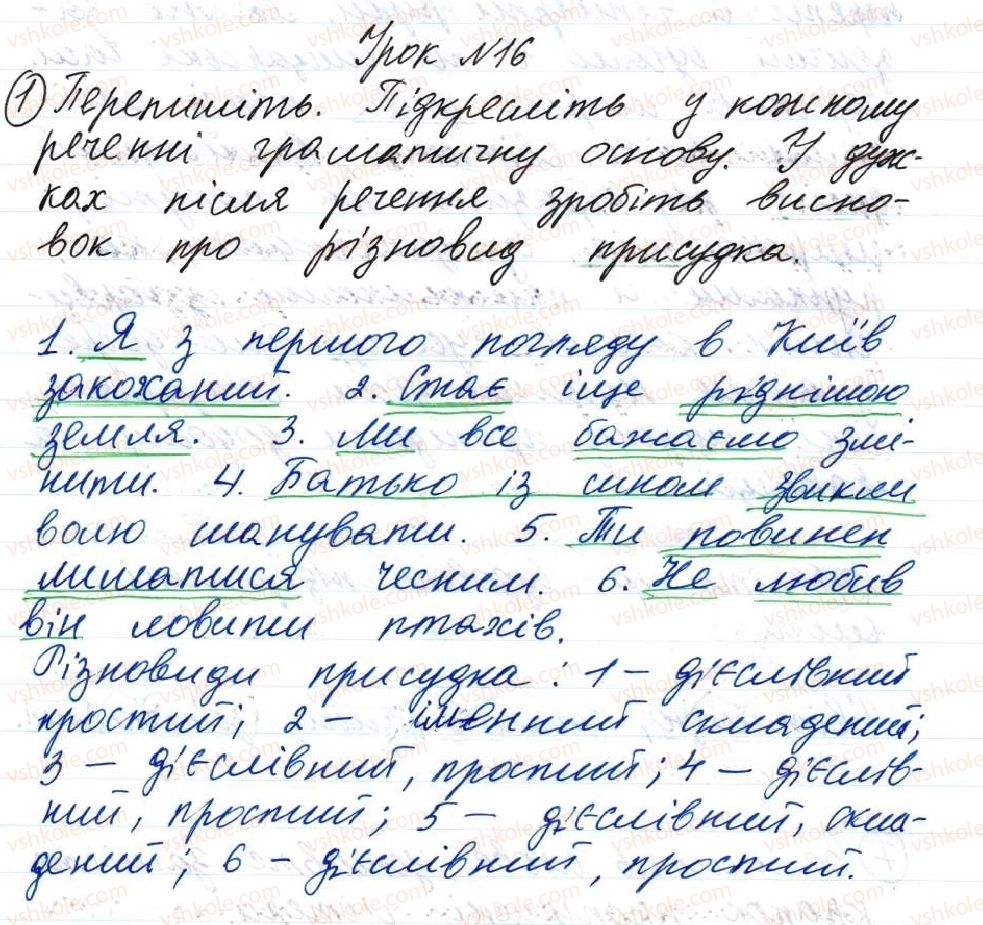 Урок №16
① Перепишіть. Підкресліть у кожному
реченні граматичну основу. У дуж-
ках після речення зробіть висно-
вок про різновид присудка.
1. Я з першого погляду в Київ
закоханий. 2. Стає іще ріднішою
земля. 3. Ми все бажаємо змі-
нити. 4. Батько із сином звикли
волю шанувати. 5. Ти повинен
лишатися чесним. 6. Не любив
він ловити птахів.
Різновиди присудка: 1 – дієслівний
простий; 2 – іменний складений;
3 – дієслівний, простий; 4 – дієслів-
ний, простий; 5 – дієслівний, скла-
дений; 6 – дієслівний, простий.